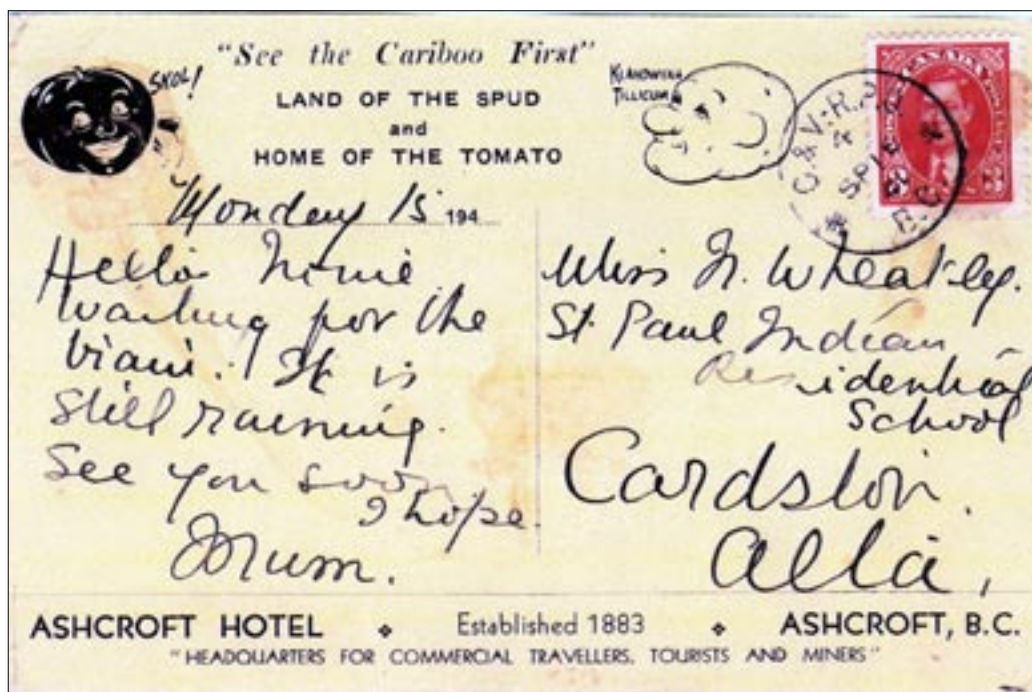 "See the Cariboo First"
SKOL!
KLAHOWYAH
TILLICUM
LAND OF THE SPUD
and
HOME OF THE TOMATO
CANADA
C & V. R.P.O.
4
SP 16
40
B.C.
Monday 15 194
Hello
Waiting for the
train. It is
still raining.
See you soon
I hope.
Mum.
Miss N. Wheatley.
St. Paul Indian
Residential
School
Cardston.
Alta,
ASHCROFT HOTEL Established 1883 ASHCROFT, B.C.
"HEADQUARTERS FOR COMMERCIAL TRAVELLERS, TOURISTS AND MINERS"